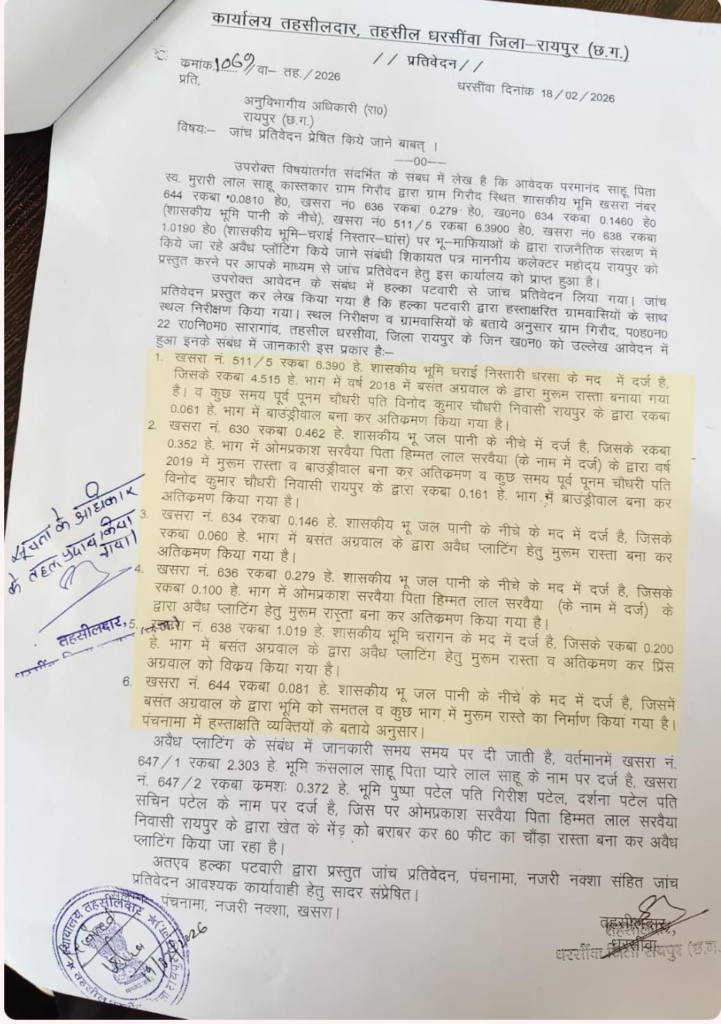 कार्यालय तहसीलदार, तहसील धरसींवा जिला–रायपुर (छ.ग.)
// प्रतिवेदन //
क्रमांक 1069/वा– तह./2026
धरसींवा दिनांक 18/02/2026
प्रति,
अनुविभागीय अधिकारी (रा0)
रायपुर (छ.ग.)
विषयः– जांच प्रतिवेदन प्रेषित किये जाने बाबत् ।
—00—
उपरोक्त विषयांतर्गत संदर्भित के संबध में लेख है कि आवेदक परमानंद साहू पिता
स्व. मुरारी लाल साहू कास्तकार ग्राम गिरौद द्वारा ग्राम गिरौद स्थित शासकीय भूमि खसरा नंबर
644 रकबा 0.0810 हे0, खसरा नं0 636 रकबा 0.279 हे0, ख0न0 634 रकबा 0.1460 हे0
(शासकीय भूमि पानी के नीचे), खसरा नं0 511/5 रकबा 6.3900 हे0, खसरा नं0 638 रकबा
1.0190 हे0 (शासकीय भूमि–चराई निस्तार–घांस) पर भू–माफियाओ के द्वारा राजनैतिक संरक्षण में
किये जा रहे अवैध प्लॉटिंग किये जाने संबंधी शिकायत पत्र माननीय कलेक्टर महोदय रायपुर को
प्रस्तुत करने पर आपके माध्यम से जांच प्रतिवेदन हेतु इस कार्यालय को प्राप्त हुआ है।
उपरोक्त आवेदन के संबंध में हल्का पटवारी से जांच प्रतिवेदन लिया गया। जांच
प्रतिवेदन प्रस्तुत कर लेख किया गया है कि हल्का पटवारी द्वारा हस्ताक्षरित ग्रामवासियों के साथ
स्थल निरीक्षण किया गया। स्थल निरीक्षण व ग्रामवासियों के बताये अनुसार ग्राम गिरौद, प0ह0न0
22 रा0नि0म0 सारागांव, तहसील धरसींवा, जिला रायपुर के जिन ख0न0 को उल्लेख आवेदन में
हुआ इनके संबंध में जानकारी इस प्रकार हैः–
1. खसरा नं. 511/5 रकबा 6.390 हे. शासकीय भूमि चराई निस्तारी धरसा के मद में दर्ज है,
जिसके रकबा 4.515 हे. भाग में वर्ष 2018 में बसंत अग्रवाल के द्वारा मुरूम रास्ता बनाया गया
है। व कुछ समय पूर्व पूनम चौधरी पति विनोद कुमार चौधरी निवासी रायपुर के द्वारा रकबा
0.061 हे. भाग में बाउंड्रीवाल बना कर अतिक्रमण किया गया है।
2. खसरा नं. 630 रकबा 0.462 हे. शासकीय भू जल पानी के नीचे में दर्ज है, जिसके रकबा
0.352 हे. भाग में ओमप्रकाश सरवैया पिता हिम्मत लाल सरवैया (के नाम में दर्ज) के द्वारा वर्ष
2019 में मुरूम रास्ता व बाउंड्रीवाल बना कर अतिक्रमण व कुछ समय पूर्व पूनम चौधरी पति
विनोद कुमार चौधरी निवासी रायपुर के द्वारा रकबा 0.161 हे. भाग में बाउंड्रीवाल बना कर
अतिक्रमण किया गया है।
3. खसरा नं. 634 रकबा 0.146 हे. शासकीय भू जल पानी के नीचे के मद में दर्ज है, जिसके
रकबा 0.060 हे. भाग में बसंत अग्रवाल के द्वारा अवैध प्लाटिंग हेतु मुरूम रास्ता बना कर
अतिक्रमण किया गया है।
4. खसरा नं. 636 रकबा 0.279 हे. शासकीय भू जल पानी के नीचे के मद में दर्ज है, जिसके
रकबा 0.100 हे. भाग में ओमप्रकाश सरवैया पिता हिम्मत लाल सरवैया (के नाम में दर्ज) के
द्वारा अवैध प्लाटिंग हेतु मुरूम रास्ता बना कर अतिक्रमण किया गया है।
5. खसरा नं. 638 रकबा 1.019 हे. शासकीय भूमि चरागन के मद में दर्ज है, जिसके रकबा 0.200
हे. भाग में बसंत अग्रवाल के द्वारा अवैध प्लाटिंग हेतु मुरूम रास्ता व अतिक्रमण कर प्रिंस
अग्रवाल को विक्रय किया गया है।
6. खसरा नं. 644 रकबा 0.081 हे. शासकीय भू जल पानी के नीचे के मद में दर्ज है, जिसमें
बसंत अग्रवाल के द्वारा भूमि को समतल व कुछ भाग में मुरूम रास्ते का निर्माण किया गया है।
पंचनामा में हस्ताक्षति व्यक्तियों के बताये अनुसार।
अवैध प्लाटिंग के संबंध में जानकारी समय समय पर दी जाती है, वर्तमानमें खसरा नं.
647/1 रकबा 2.303 हे. भूमि कंसलाल साहू पिता प्यारे लाल साहू के नाम पर दर्ज है, खसरा
नं. 647/2 रकबा क्रमशः 0.372 हे. भूमि पुष्पा पटेल पति गिरीश पटेल, दर्शना पटेल पति
सचिन पटेल के नाम पर दर्ज है, जिस पर ओमप्रकाश सरवैया पिता हिम्मत लाल सरवैया
निवासी रायपुर के द्वारा खेत के मेंड़ को बराबर कर 60 फीट का चौड़ा रास्ता बना कर अवैध
प्लाटिंग किया जा रहा है।
अतएव हल्का पटवारी द्वारा प्रस्तुत जांच प्रतिवेदन, पंचनामा, नजरी नक्शा संहित जांच
प्रतिवेदन आवश्यक कार्यवाही हेतु सादर संप्रेशित।
पंचनामा, नजरी नक्शा, खसरा।
सूचना के अधिकार
के तहत प्रदाय किया
गया।
तहसीलदार,
तहसीलदार,
धरसींवा
धरसींवा जिला रायपुर (छ.ग.